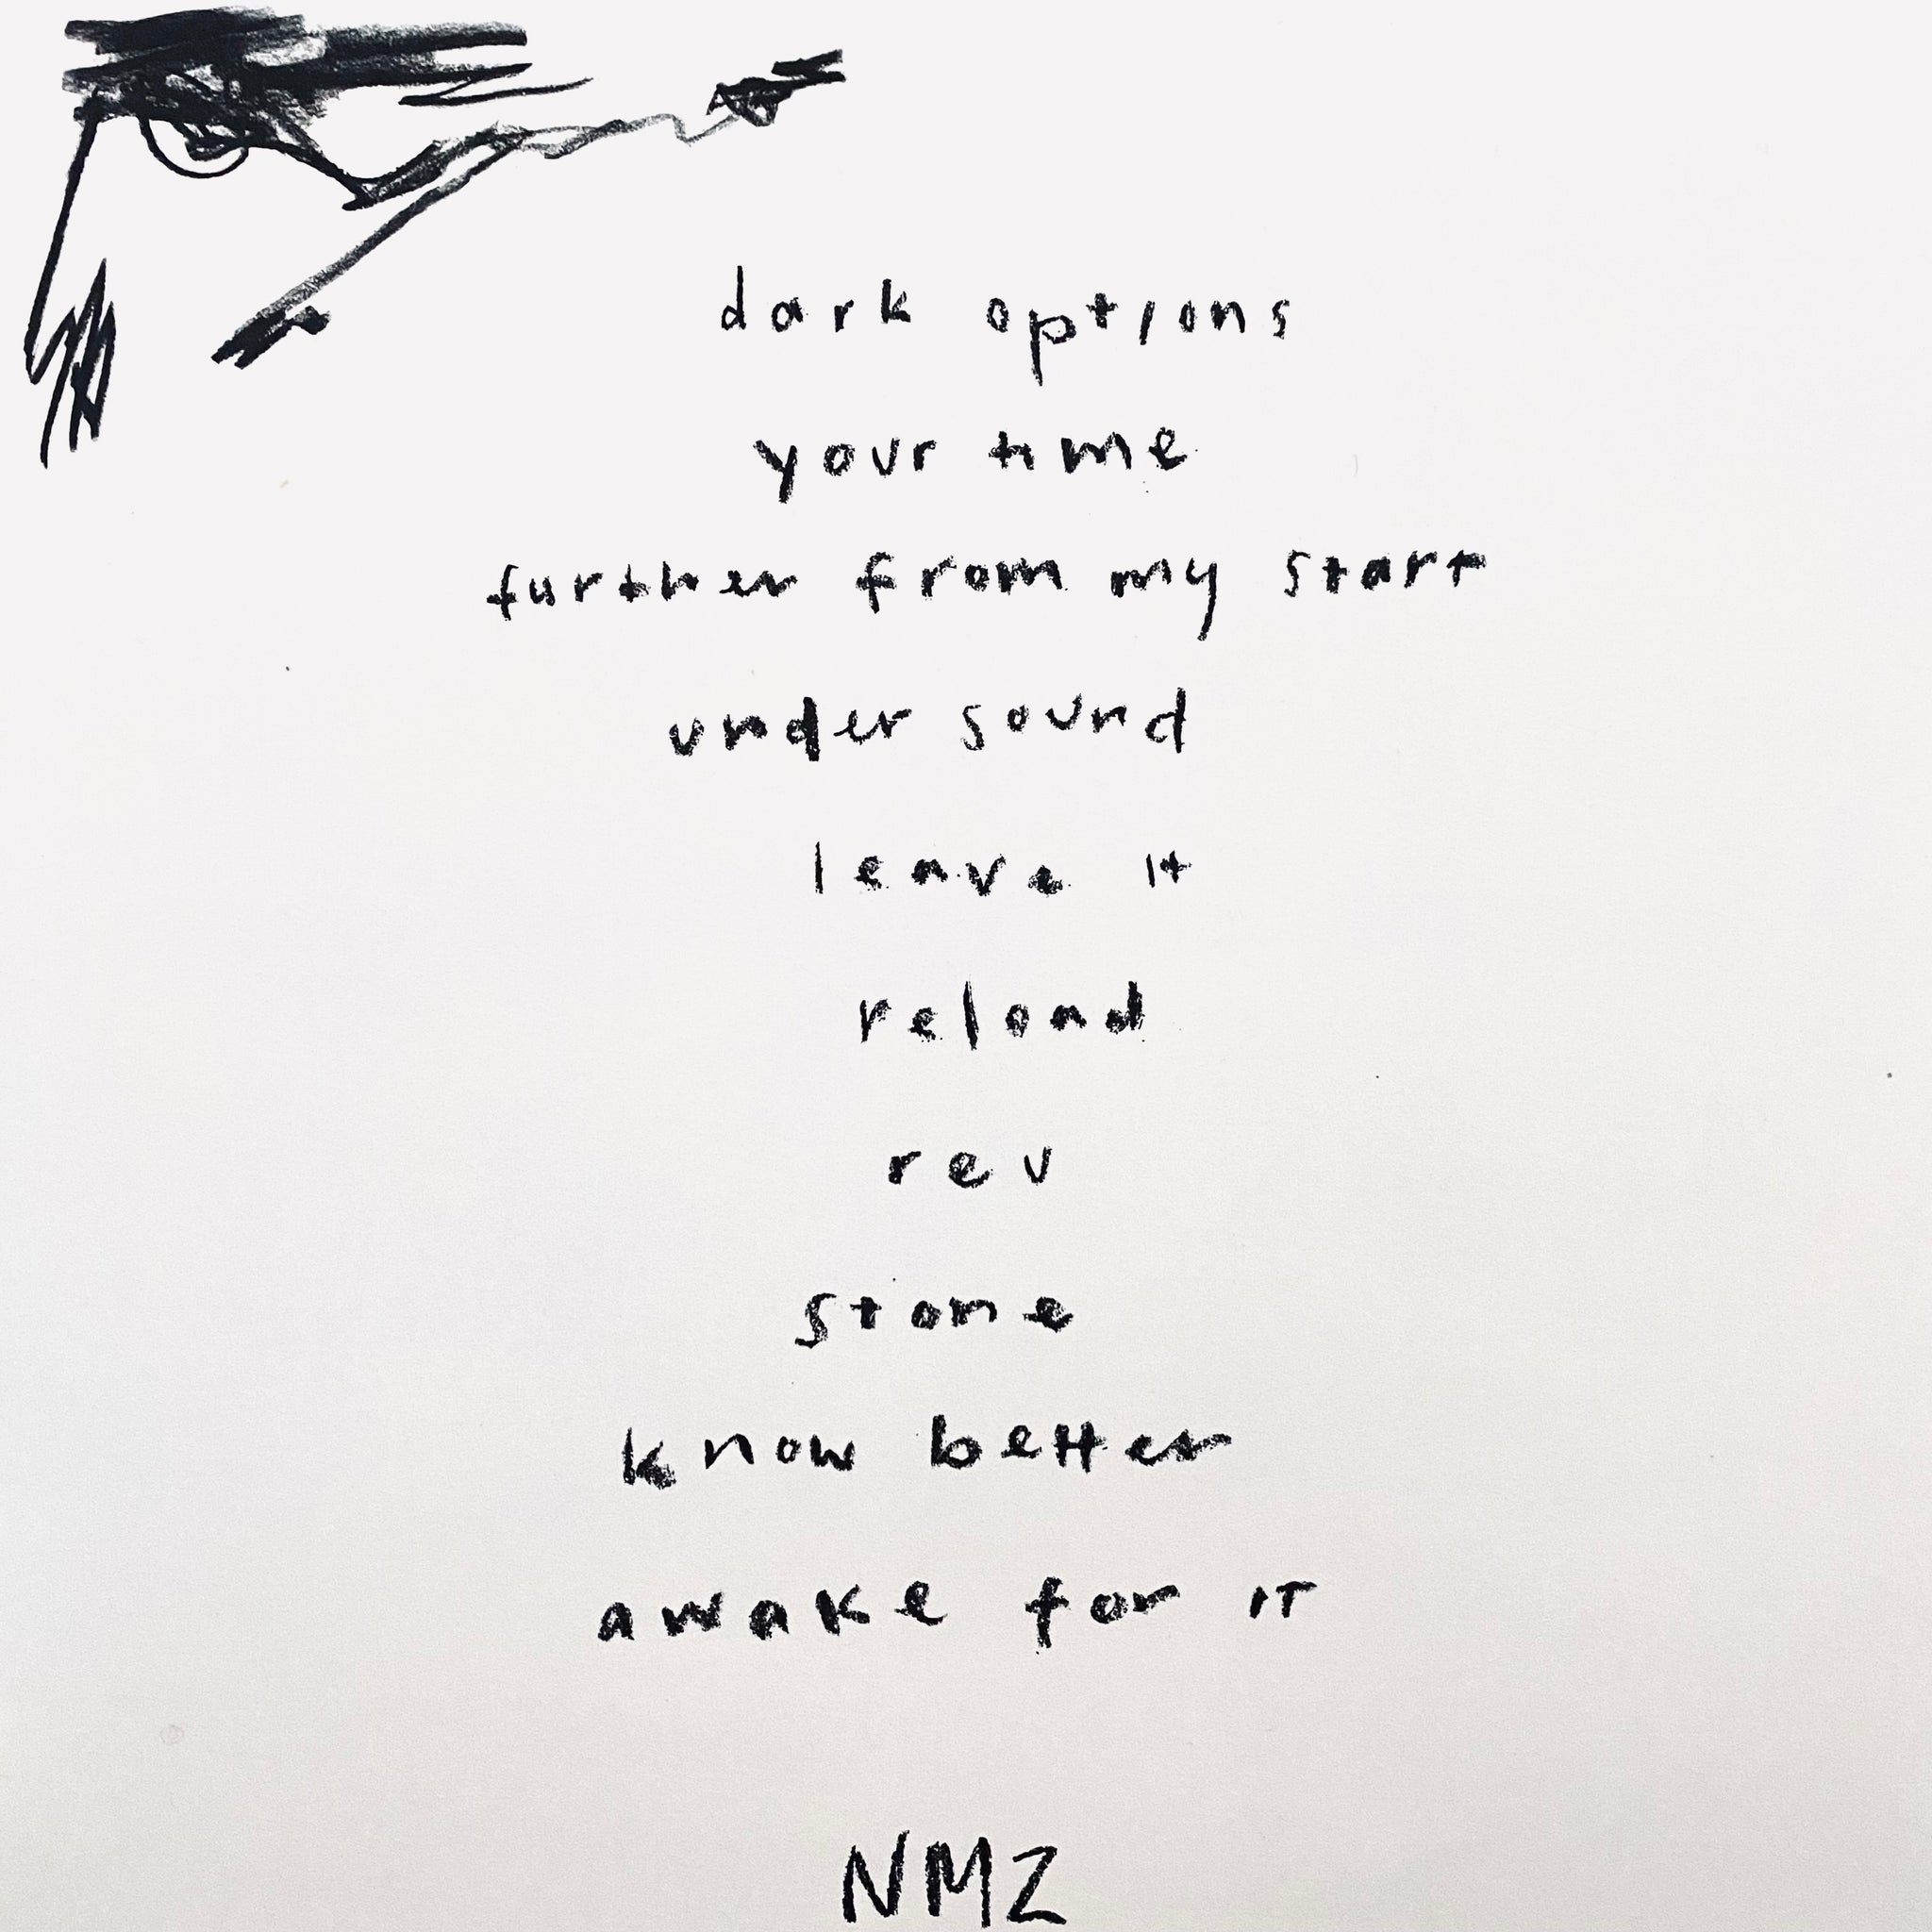 dark options
your time
further from my start
under sound
leave it
reload
rev
stone
know better
awake for it
NMZ